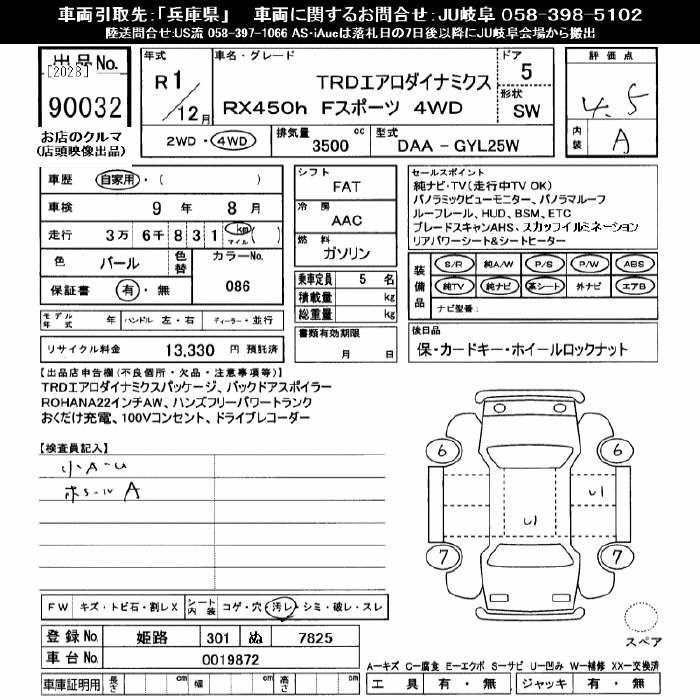 車両引取先：「兵庫県」　車両に関するお問合せ：JU岐阜 058-398-5102
陸送問合せ:US流 058-397-1066 AS-iAucは落札日の7日後以降にJU岐阜会場から搬出
出品No.
[2028]
90032
お店のクルマ
(店頭映像出品)
年式
R 1 / 12 月
車名・グレード
TRDエアロダイナミクス
RX450h Fスポーツ 4WD
ドア 5
形状 SW
2WD・4WD
排気量 3500 cc
型式 DAA - GYL25W
評価点
4.5
内装 A
車歴 自家用・( )
車検 9 年 8 月
走行 3万 6千 8 3 1 km マイル ( )
色 パール
色替
カラーNo. 086
保証書 有・無
モデル年式 年 ハンドル 左・右 ディーラー・並行
リサイクル料金 13,330 円 預託済
シフト FAT
冷房 AAC
燃料 ガソリン
乗車定員 5 名
積載量 kg
総重量 kg
書類有効期限
月 日
セールスポイント
純ナビ・TV(走行中TV OK)
パノラミックビューモニター、パノラマルーフ
ルーフレール、HUD、BSM、ETC
ブレードスキャンAHS、スカッフイルミネーション
リアパワーシート&シートヒーター
装備品
S/R 純A/W P/S P/W ABS
純TV 純ナビ 革シート 外ナビ エアB
ナビ型番：
後日品
保・カードキー・ホイールロックナット
【出品店申告欄(不良個所・欠品・注意事項等)】
TRDエアロダイナミクスパッケージ、バックドアスポイラー
ROHANA22インチAW、ハンズフリーパワートランク
おくだけ充電、100Vコンセント、ドライブレコーダー
【検査員記入】
小A-U
ホイール A
6
6
U1
U1
7
7
スペア
FW キズ・トビ石・割レX
シート内装 コゲ・穴・汚レ・シミ・破レ・スレ
登録No. 姫路 301 ぬ 7825
車台No. 0019872
車庫証明用 長さ cm 幅 cm 高さ cm
A−キズ C−腐食 E−エクボ S−サビ U−凹み W−補修 XX−交換済
工具 有・無 ジャッキ 有・無